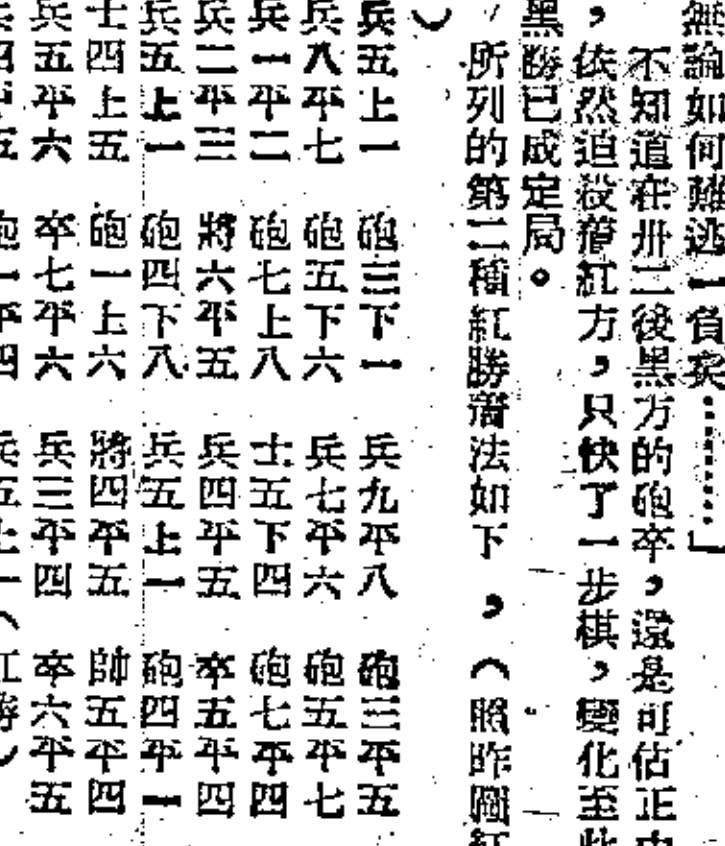 無論如何難逃一負矣………」
不知道在卅二後黑方的砲卒,還是可估正中
,依然迫着紅方,只快了一步棋,變化至此
黑勝已成定局。
所列的第二種紅勝着法如下,(照昨圖紅
)
兵五上一 砲三下一 兵九平八 砲三平五
兵八平七 砲五下六 兵七平六 砲五平七
兵一平二 砲七上八 士五下四 砲七平四
兵二平三 將六平五 兵四平五 卒五平四
兵五上一 砲四下八 兵五上一 砲四平一
士四上五 砲一上六 將四平五 帥五平四
兵五平六 卒七平六 兵三平四 卒六平五
兵四平五 砲一平四 兵五上一(紅勝)